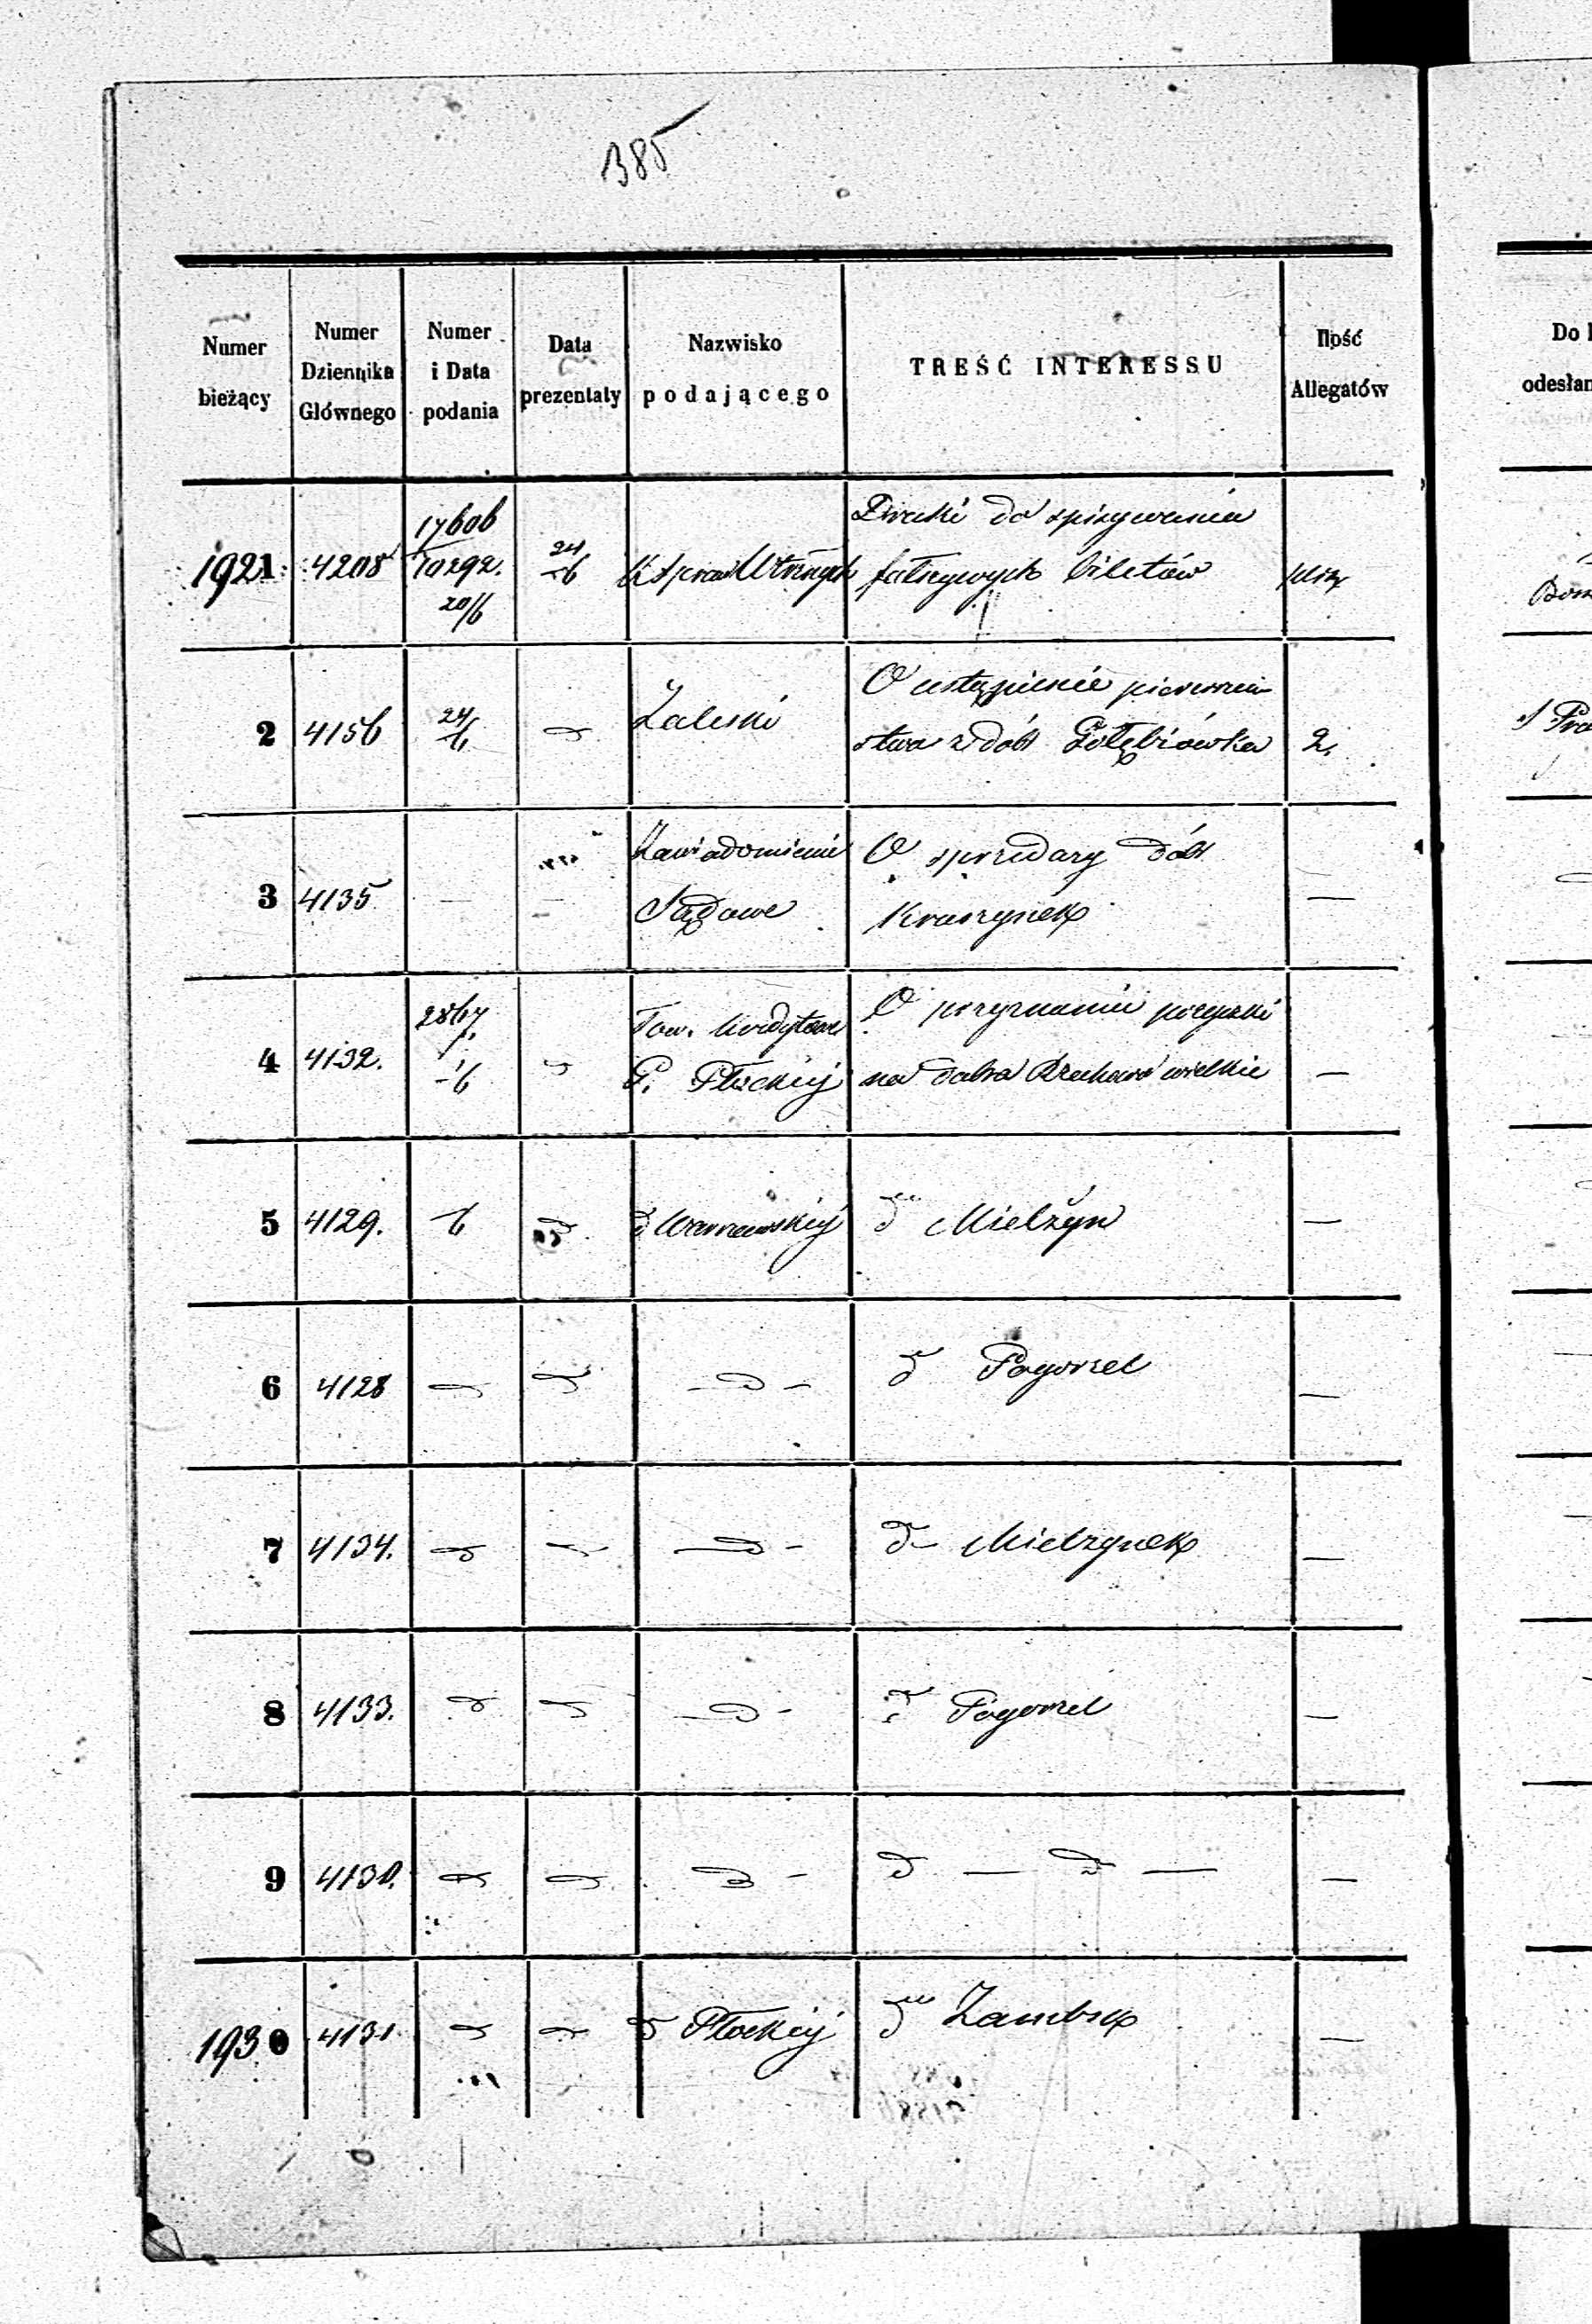 385
Numer bieżący
Numer Dziennika Głównego
Numer i Data podania
Data prezentaty
Nazwisko podającego
TREŚĆ INTERESSU
Ilość Allegatów
Do
odesłan
1921 4208 17606 Druki do spisywania
10292. 24/6 K Spraw Wewnętrznych fałszywych biletów
20/6
2 4156 24/6 d Zaleski O ustąpienie pierwszeń
stwa z dóbr Gołębiówka 2.
3 4135 — — Zawiadomienie O sprzedaży dóbr —
Sądowe Kraszynek
4 4132. 2867 d Tow. Kredytowe O przyznaniu pożyczki —
/6 P. Płockiej na dobra Brzechowo wielkie
5 4129. /6 d d Warszawskiej d Mielżyn —
6 4128 d d — d — d Pogorzel —
7 4134. d d — d — d Mielzynek —
8 4133. d d — d — d Pogorzel —
9 4130. d d d — d — d — —
1930 4131 d d d Płockiej d Zambsk —